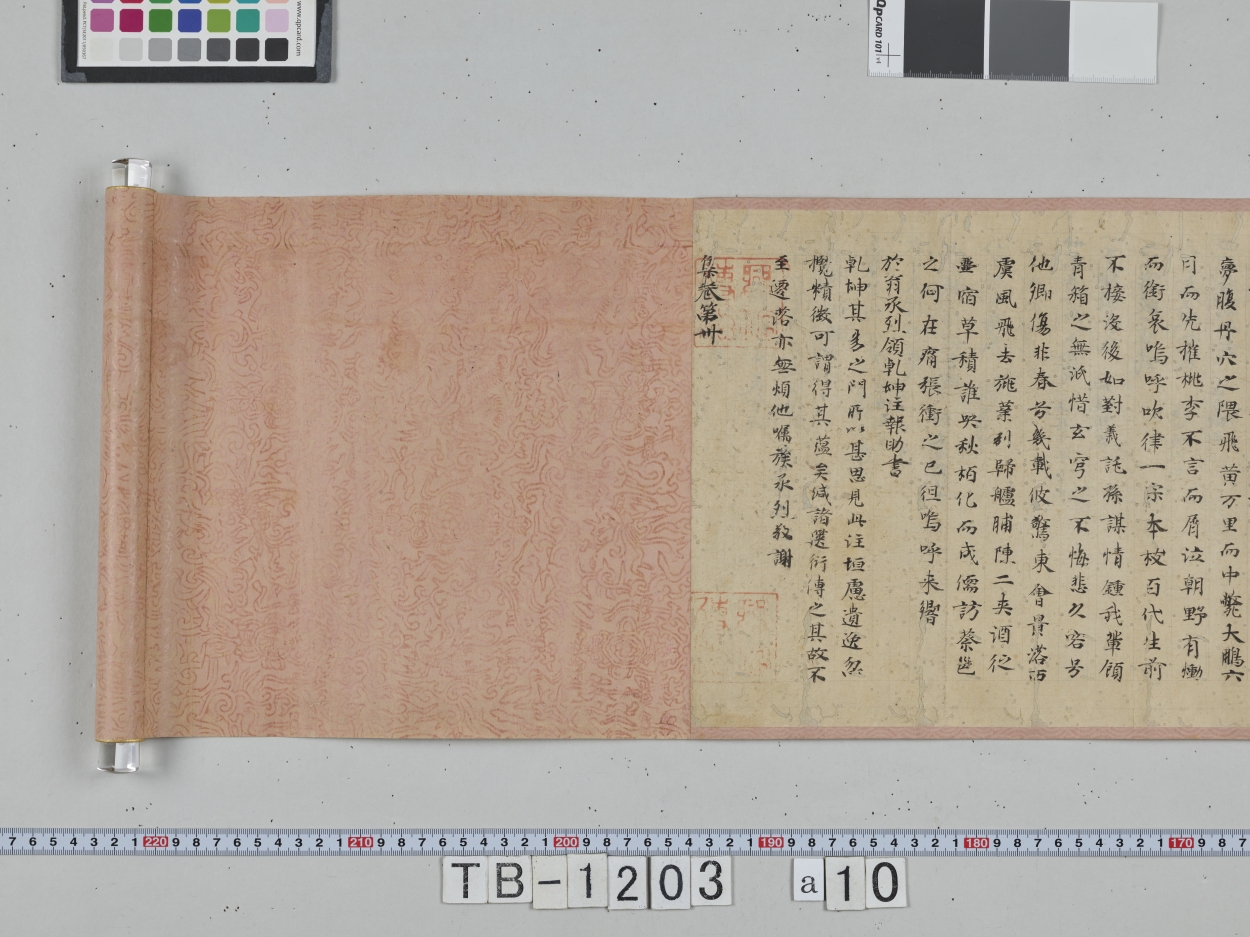 夢腹丹穴之隈飛黄万里而中斃大鵬六
月而先摧桃李不言而屑泣朝野有慟
而銜哀嗚呼吹律一宗本枝百代生前
不接没後如對義託孫謀情鍾我輩顧
青箱之無泯惜玄穹之不悔悲久客兮
他卿傷非春兮幾載彼驚東會量落西
虞風飛去旐葉列歸艫脯陳二夾酒從
並宿草積誰與秋栢化而成儒訪蔡邕
之何在痛張衝之已徂嗚呼来響
於翁承烈領乹坤注報助書
乹坤其易之門所以甚思見此注垣慮遺逸忽
攬精徴可謂得其蘊矣緘諸選衍傳之其故不
至遷落亦無煩他嘱族承烈敬謝
集巻第卅
TB-1203 a10
QPCARD 101 v4
www.qpcard.com
7 6 5 4 3 2 1 220 9 8 7 6 5 4 3 2 1 210 9 8 7 6 5 4 3 2 1 200 9 8 7 6 5 4 3 2 1 190 9 8 7 6 5 4 3 2 1 180 9 8 7 6 5 4 3 2 1 170 9 8 7